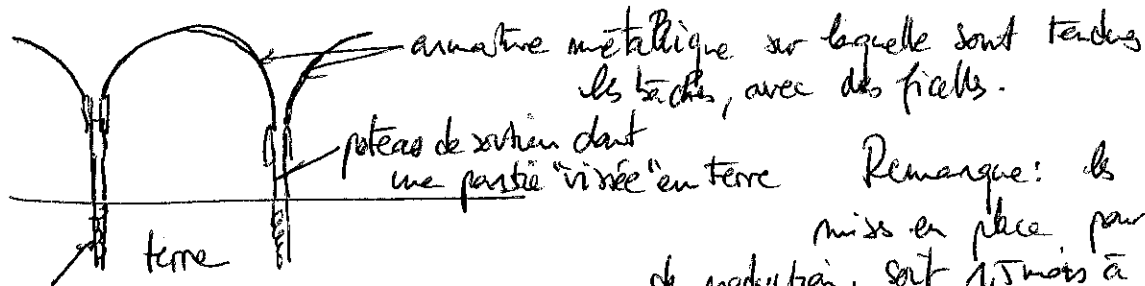 armature métallique sur laquelle sont tendues
les bâches, avec des ficelles.
poteau de soutien dont
une partie "vissée" en terre
Remarque: les
mises en place pour
terre
de production, soit 1,5 mois à